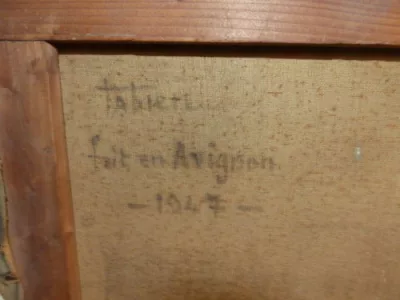 tableau
fait en Avignon.
- 1947 -